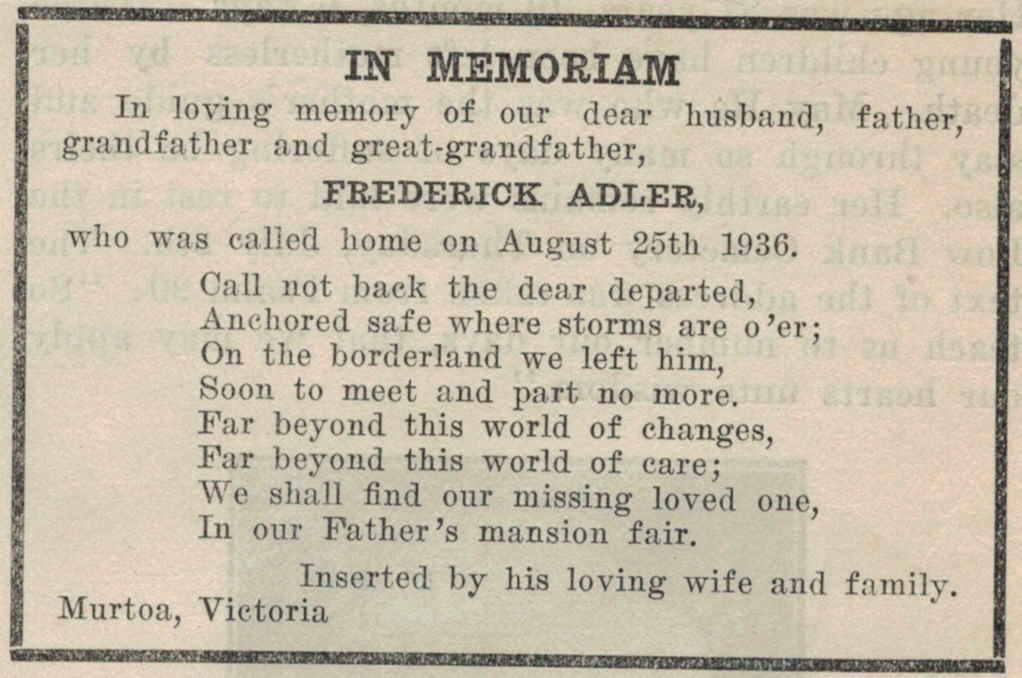 IN MEMORIAM
In loving memory of our dear husband, father,
grandfather and great-grandfather,
FREDERICK ADLER,
who was called home on August 25th 1936.
Call not back the dear departed,
Anchored safe where storms are o'er;
On the borderland we left him,
Soon to meet and part no more.
Far beyond this world of changes,
Far beyond this world of care;
We shall find our missing loved one,
In our Father's mansion fair.
Inserted by his loving wife and family.
Murtoa, Victoria